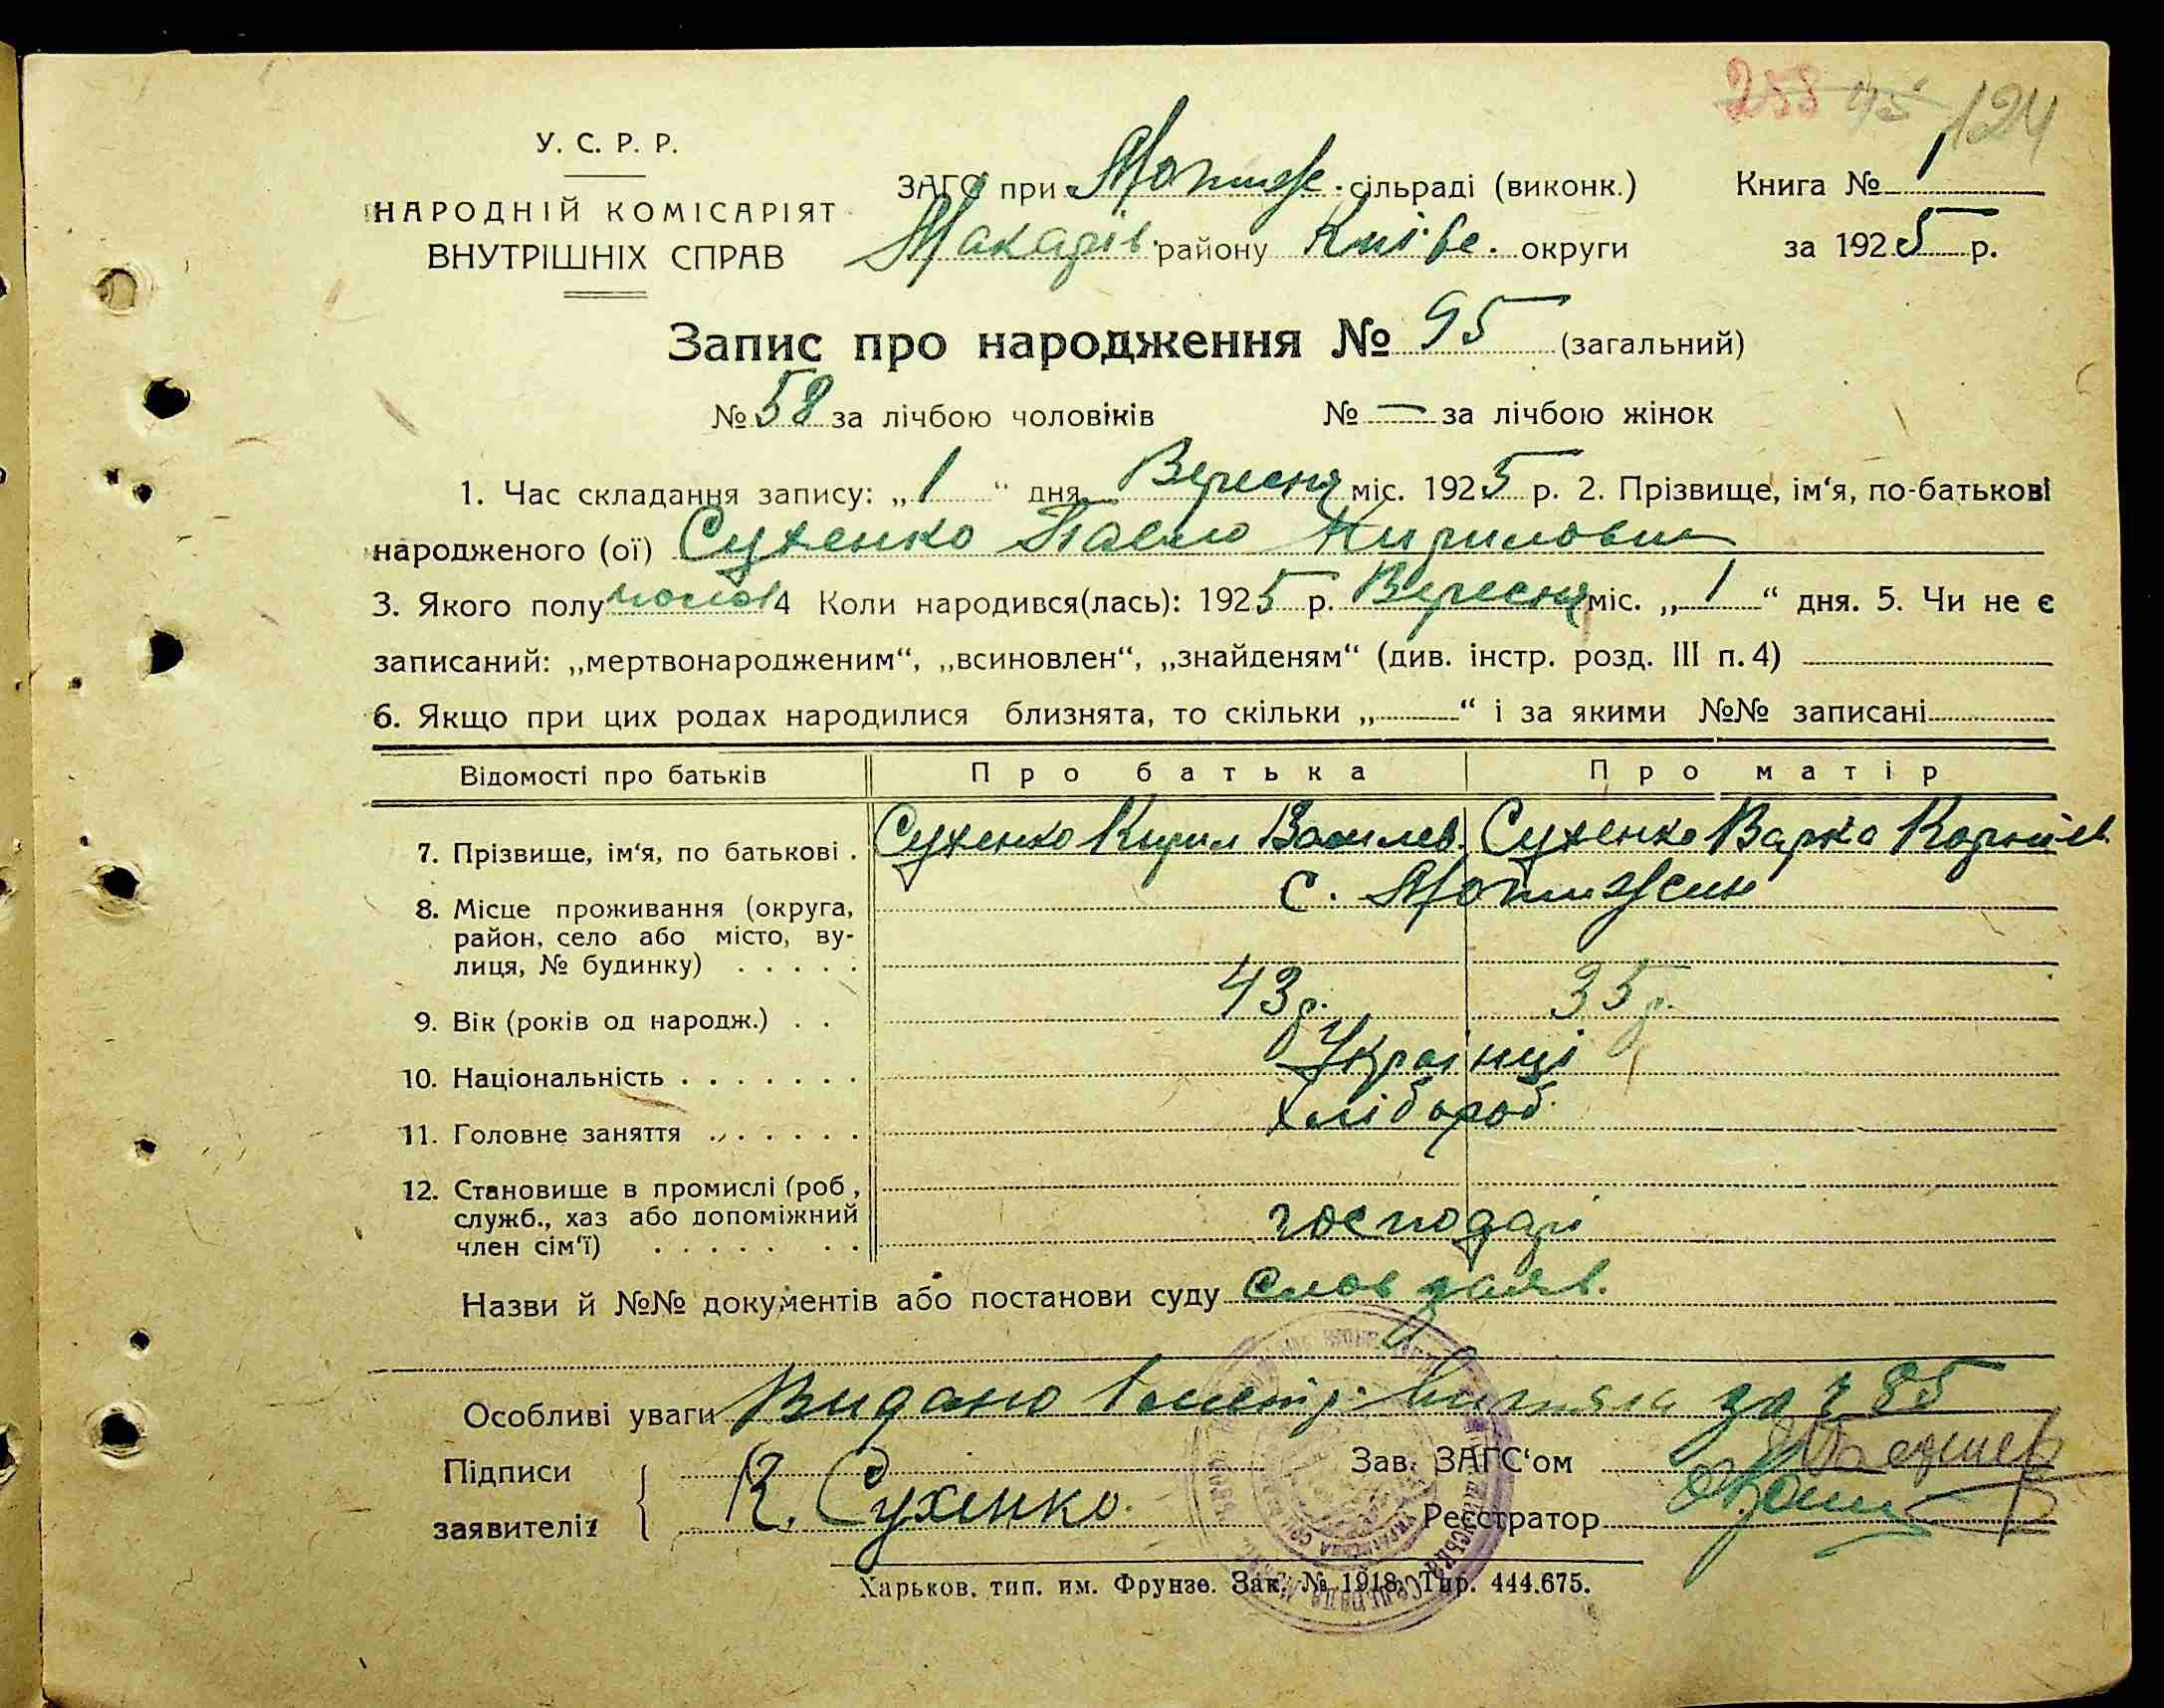 258 95 124
У. С. Р. Р.
НАРОДНІЙ КОМІСАРІЯТ
ВНУТРІШНІХ СПРАВ
ЗАГС при Мотиж. сільраді (виконк.)
Макарів. району Київс. округи
Книга № 1
за 1925 р.
Запис про народження № 95 (загальний)
№ 58 за лічбою чоловіків № — за лічбою жінок
1. Час складання запису: „1“ дня Вересня міс. 1925 р. 2. Прізвище, ім‘я, по-батькові
народженого (ої) Сухенко Павло Кирилович
3. Якого полу чолов 4 Коли народився(лась): 1925 р. Вересня міс. „1“ дня. 5. Чи не є
записаний: „мертвонародженим“, „всиновлен“, „знайденям“ (див. інстр. розд. III п. 4)
6. Якщо при цих родах народилися близнята, то скільки „ “ і за якими №№ записані
Відомості про батьків Про батька Про матір
7. Прізвище, ім‘я, по батькові . Сухенко Кирил Василев. Сухенко Варка Корніїев.
8. Місце проживання (округа, с. Мотижин
район, село або місто, ву-
лиця, № будинку) . . . . .
9. Вік (років од народж.) . . 43 р. 35 р.
10. Національність . . . . . . . Українці
11. Головне заняття . . . . . . хлібороб.
12. Становище в промислі (роб,
служб., хаз або допоміжний господарі
член сім‘ї) . . . . . . .
Назви й №№ документів або постанови суду Слов заяв.
Особливі уваги Видано витяг за № 85
Підписи
заявителів К. Сухенко.
Зав. ЗАГС‘ом
Реєстратор
Харьков, тип. им. Фрунзе. Зак. № 1918. Тир. 444.675.